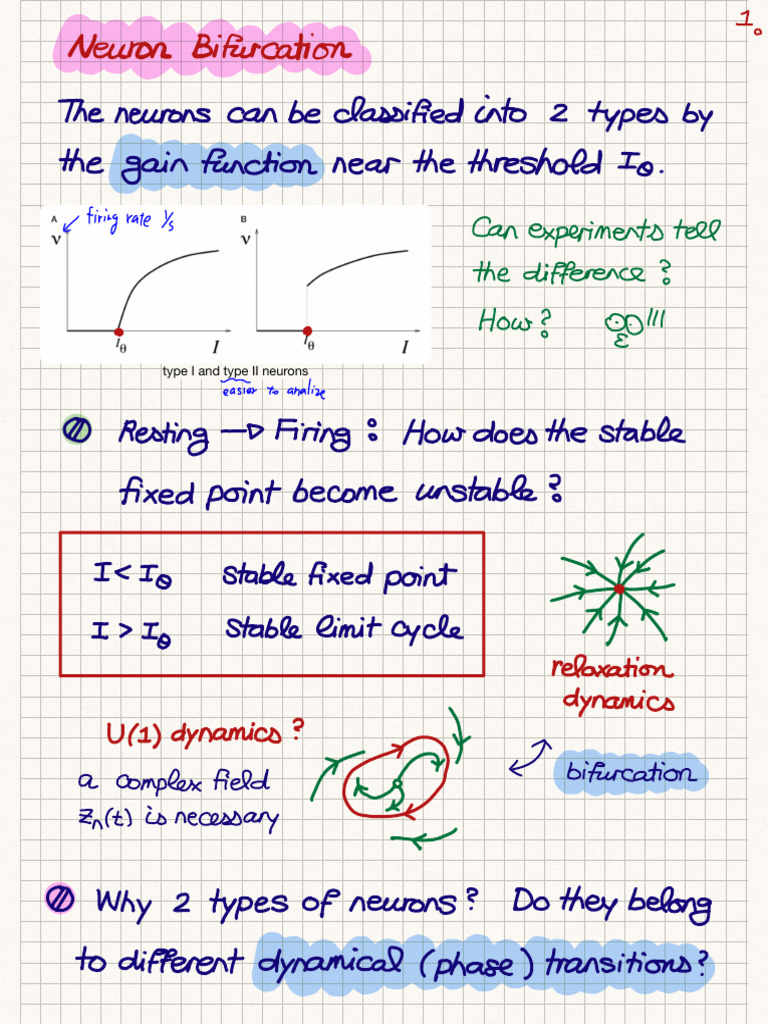 1.
Neuron Bifurcation
The neurons can be classified into 2 types by
the gain function near the threshold Iθ.
A
firing rate 1/s
B
ν
ν
Can experiments tell
the difference?
How?
Iθ
I
Iθ
I
type I and type II neurons
easier to analize
Resting → Firing: How does the stable
fixed point become unstable?
I < Iθ stable fixed point
I > Iθ stable limit cycle
relaxation
dynamics
U(1) dynamics?
a complex field
zn(t) is necessary
bifurcation
Why 2 types of neurons? Do they belong
to different dynamical (phase) transitions?